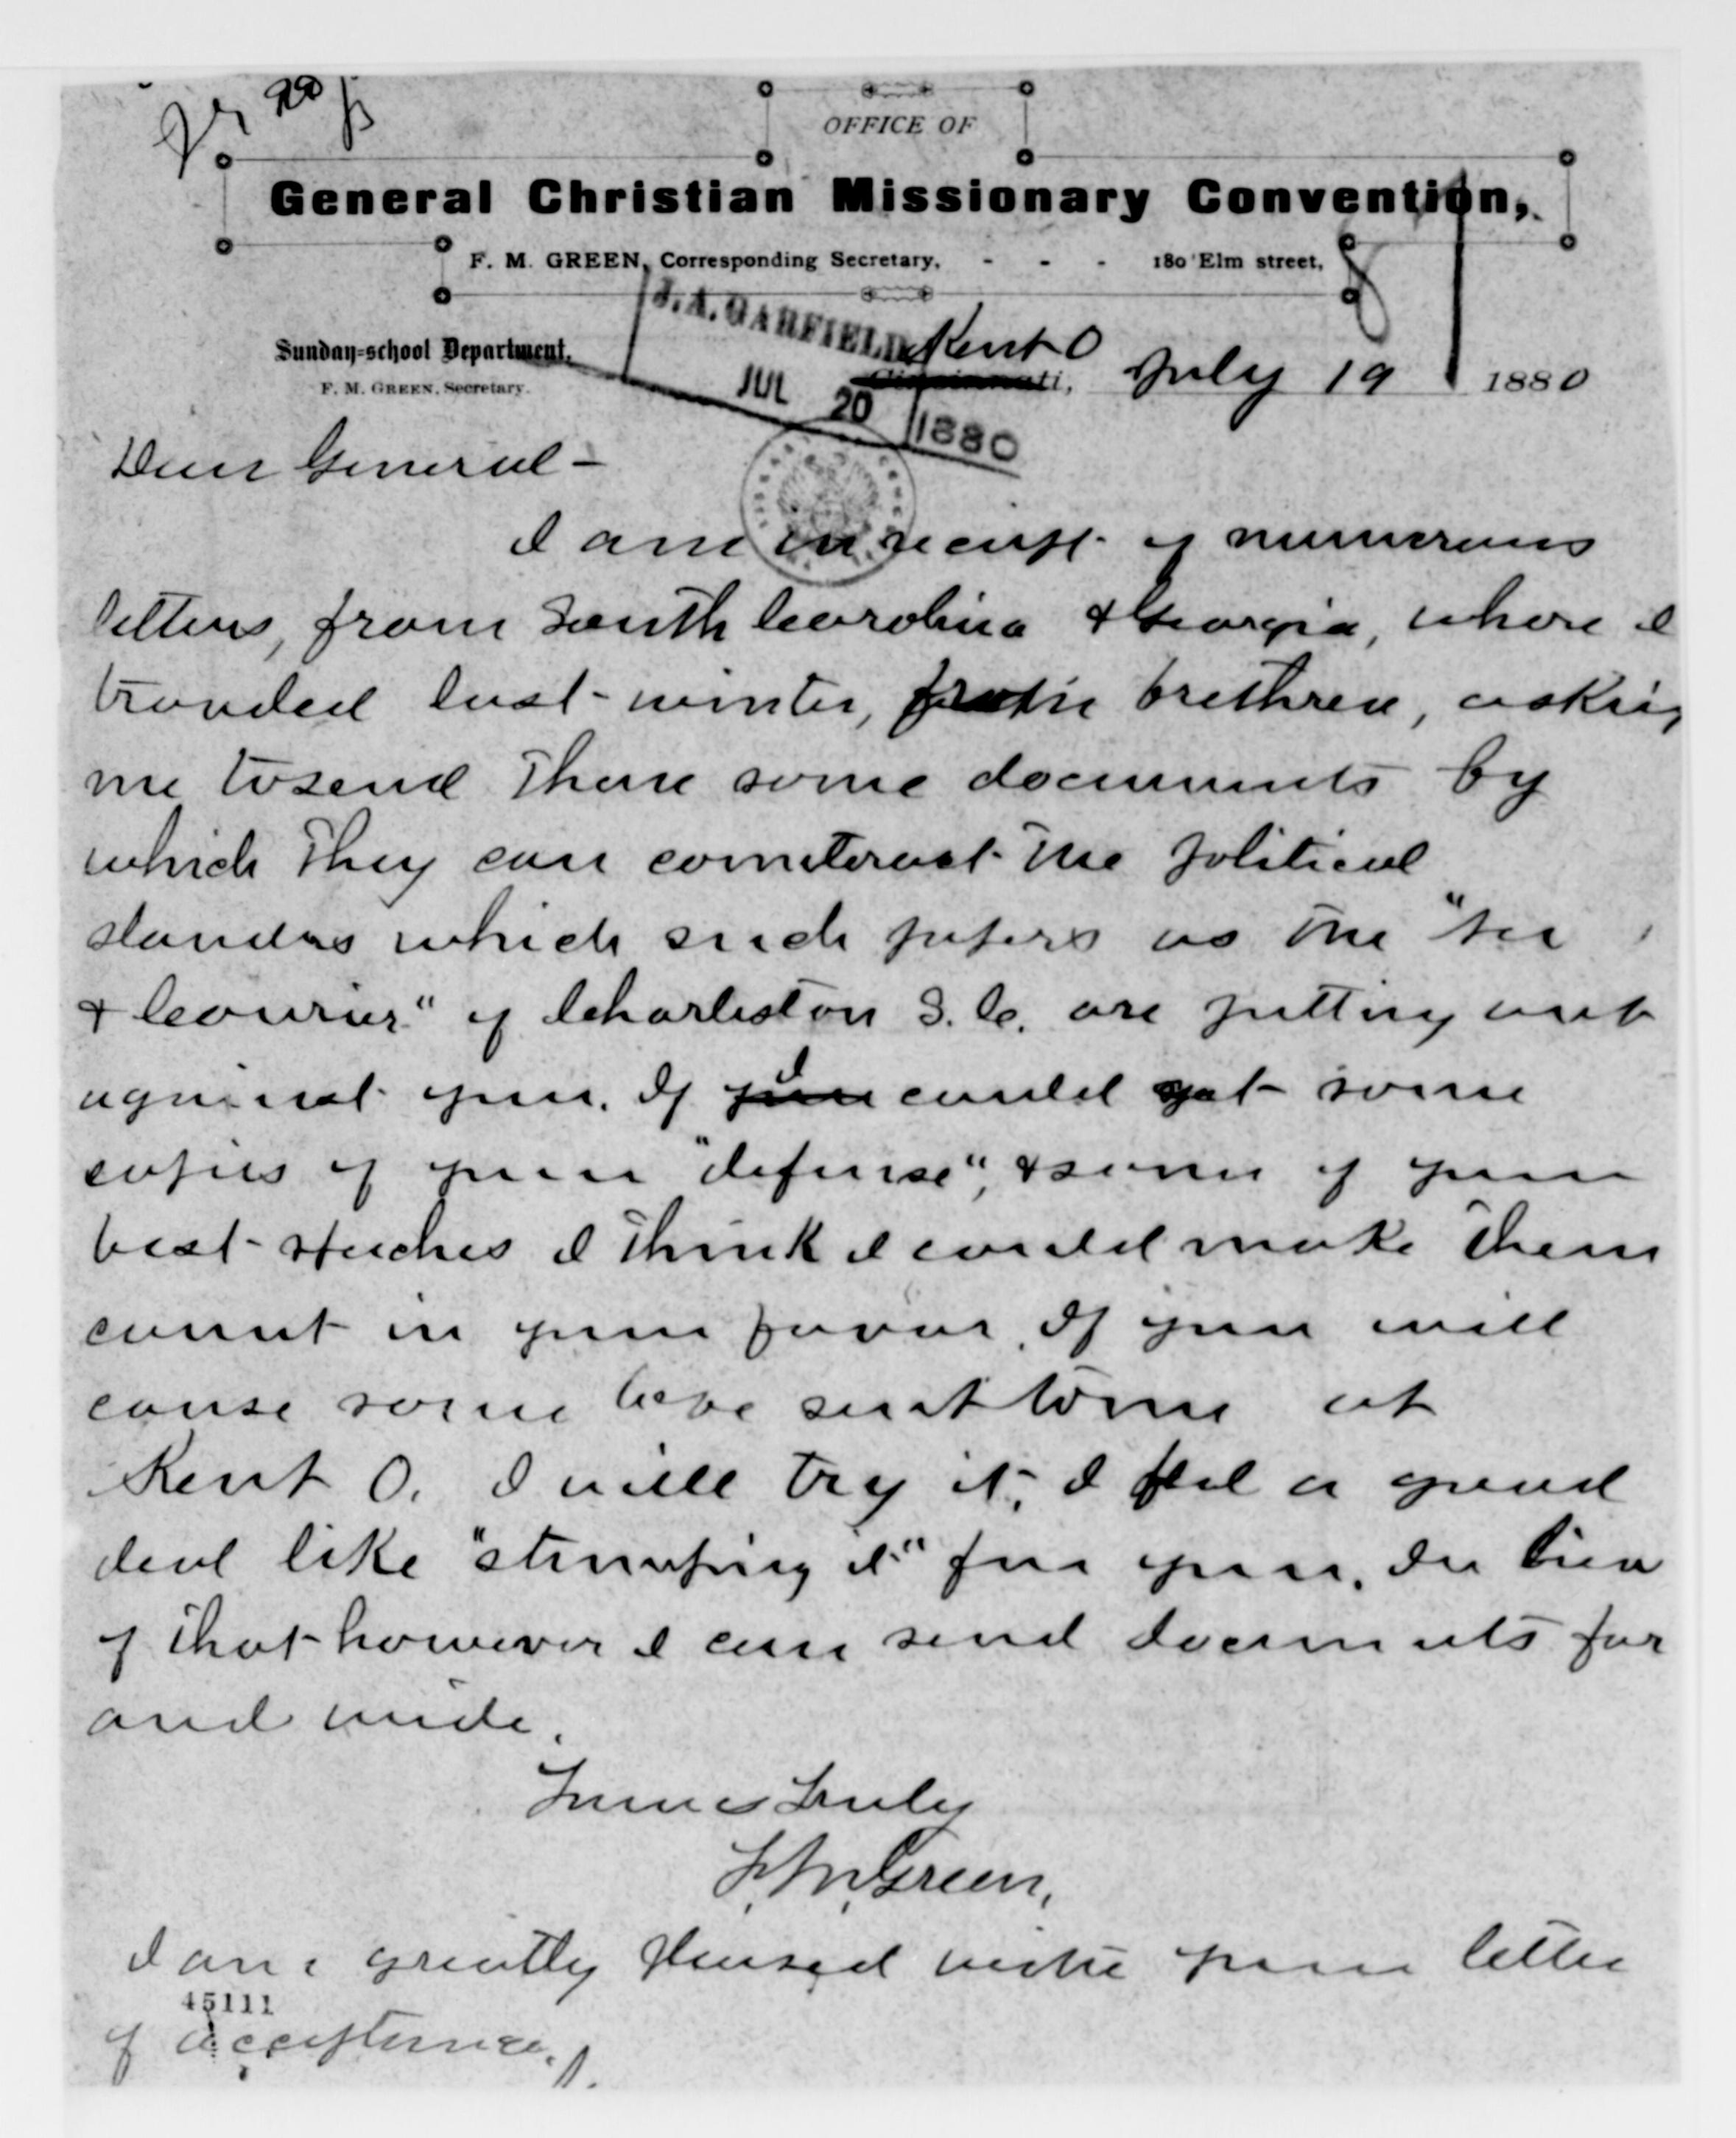 OFFICE OF
General Christian Missionary Convention,
F. M. GREEN, Corresponding Secretary, - - - 180 Elm street,
J. A. GARFIELD
Sunday=school Department,
F. M. GREEN, Secretary.
Kent O
Cincinnati, July 19 1880
JUL 20 1880
Dear General -
I am in receipt of numerous
letters, from South Carolina & Georgia, where I
traveled last winter, from the brethren, asking
me to send them some documents by
which they can counteract the political
slanders which such papers as the "
& Courier" of Charleston S. C. are putting out
against you. If you I could get some
copies of your "defense", & some of your
best speeches I think I could make them
count in your favor. If you will
cause some to be sent to me at
Kent O. I will try it; I feel a good
deal like "stumping it" for you. In lieu
of that however I can send documents far
and wide.
Yours Truly
F. M. Green,
I am greatly pleased with your letter
45111
of acceptance.